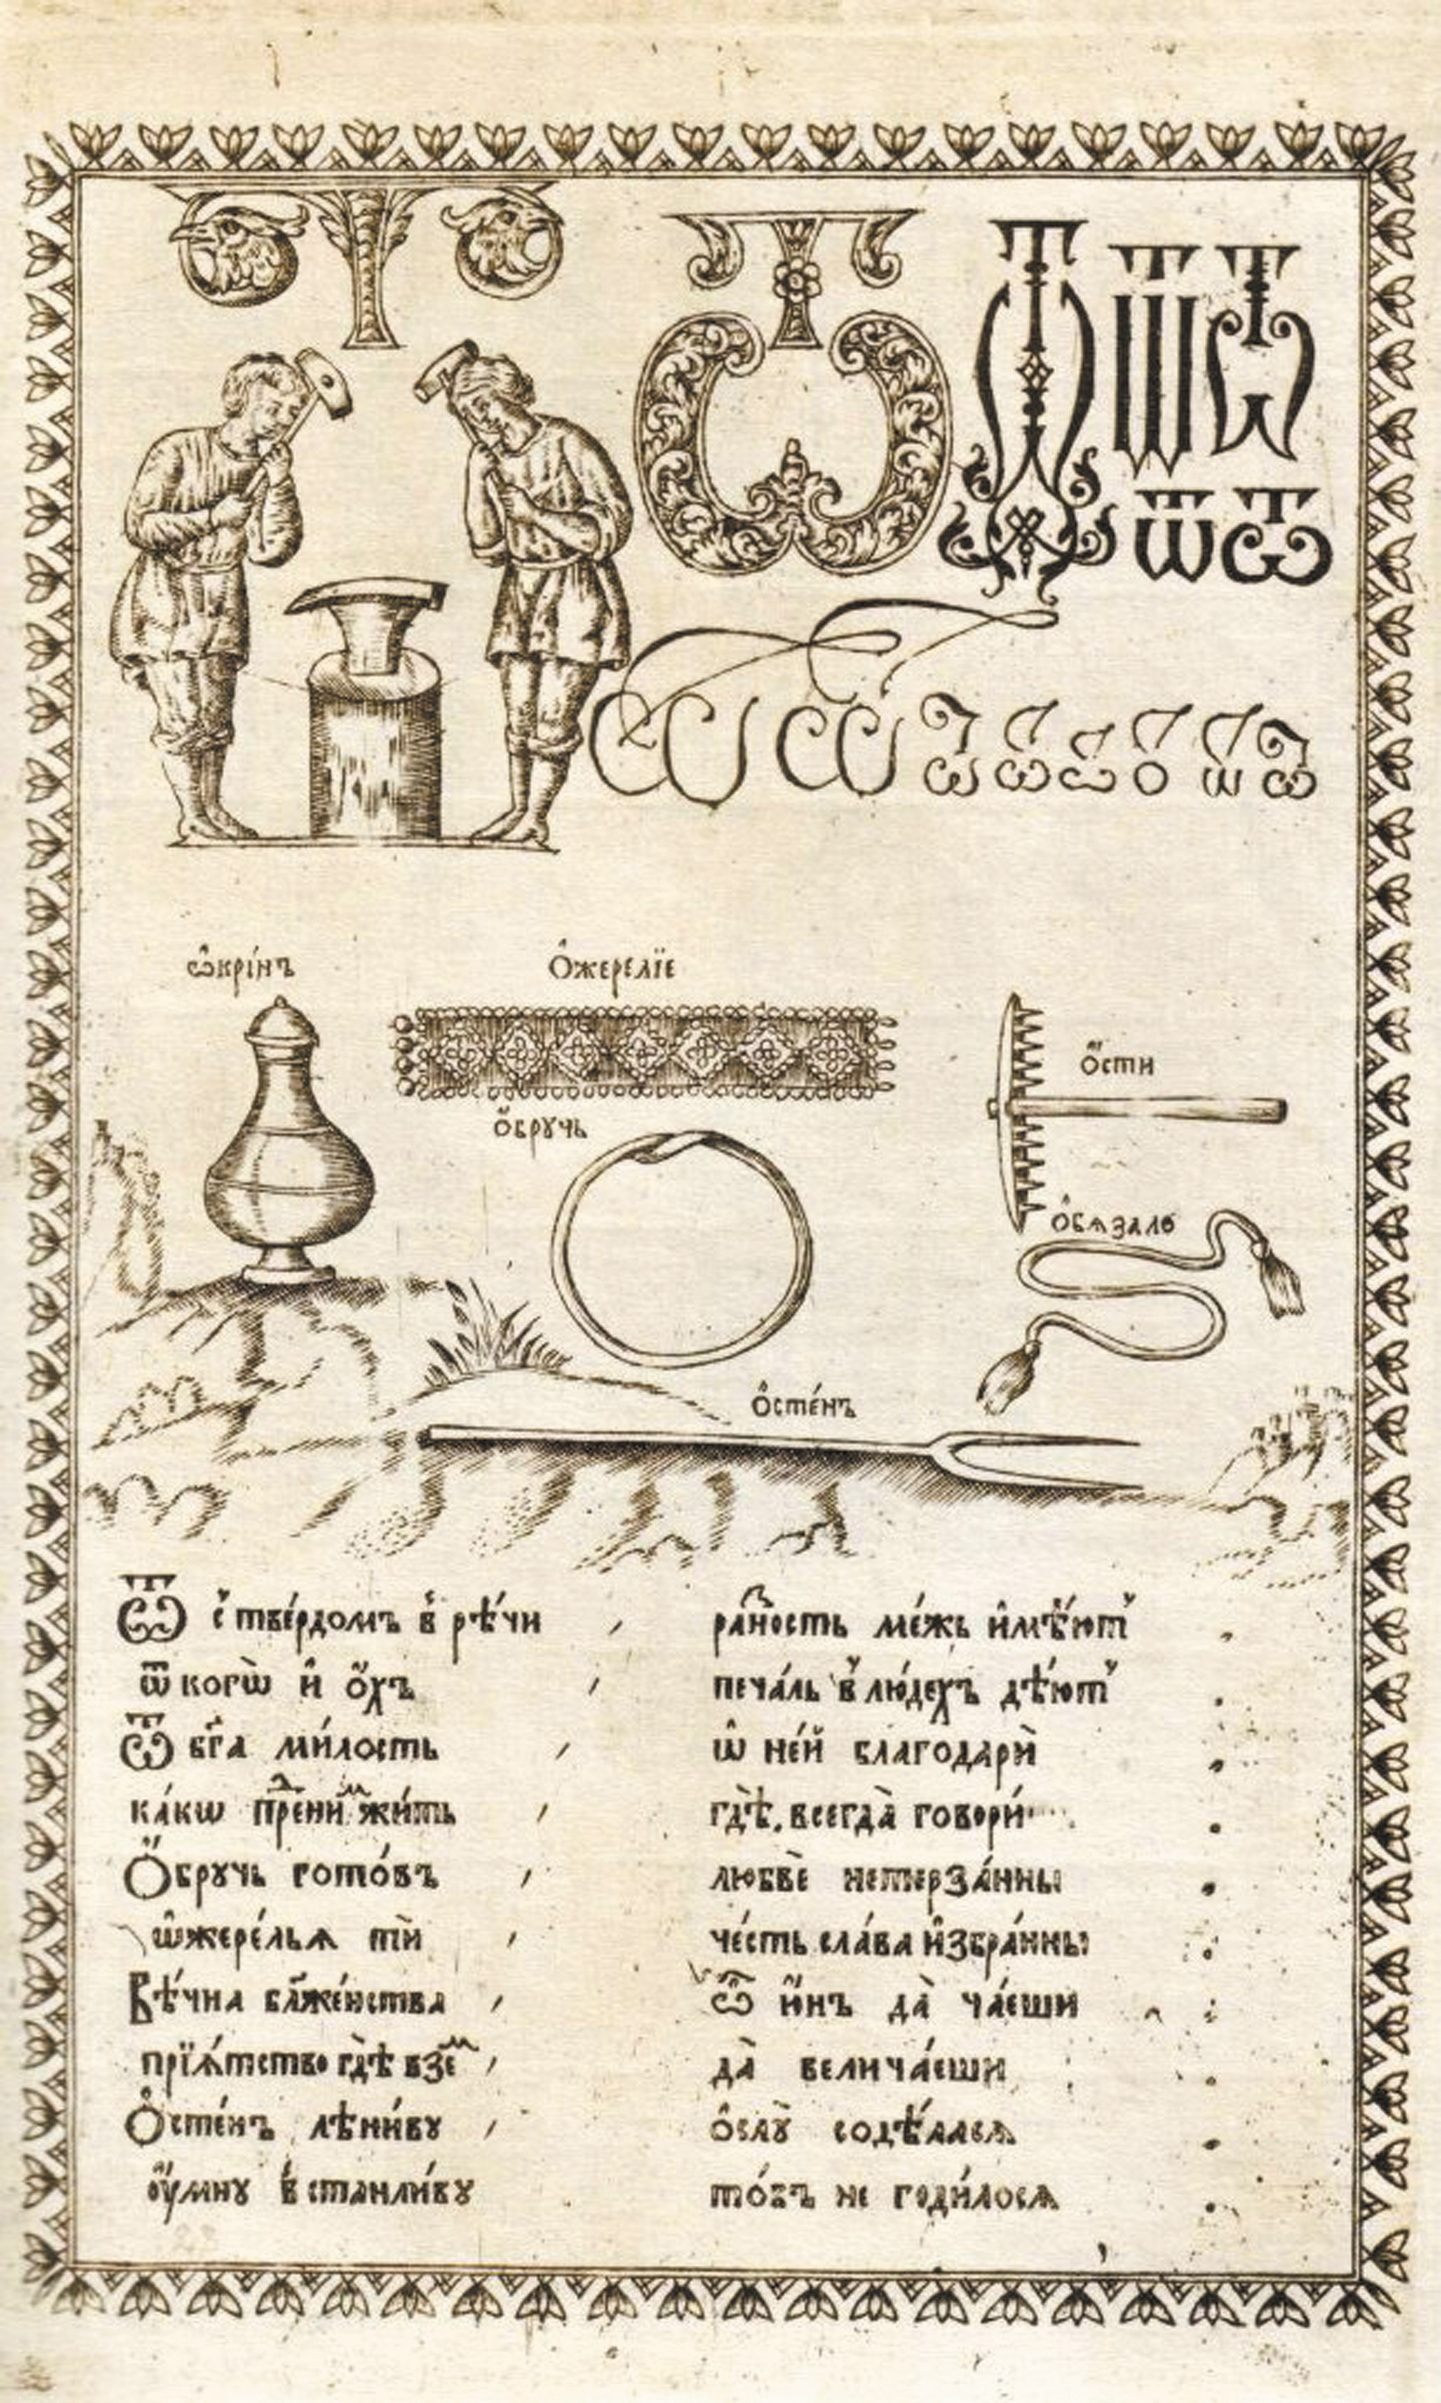 Ѿ Ѿ Ѿ Ѿ Ѿ
Ѿ Ѿ
ѡ҆кри́нъ
О҆жерелїе
о҆сти
о҆бручь
о҆бѧзало
о҆сте́нъ
Ѿ с̾ тве́рдомъ в̾ рѣ́чи , ра́зность ме́жь и҆мѣ́ют̾ .
ѿ когѡ̀ и҆ о҆́хъ , печа́ль в̾ лю́дехъ дѣ́ют̾ .
Ѿ бг҃а ми́лость , ѡ҆ не́й благодарѝ .
ка́кѡ жи́ть , гдѣ̀ всегда̀ говори́ .
О҆́бручь гото́въ , любвѐ нетерза́нны .
ѡ҆жере́льѧ тѝ , че́сть сла́ва и҆збра́нны .
Вѣ́чна бл҃же́нства , ѿ и҆́нъ да̀ ча́еши
прїѧ́тство гдѣ̀ взе́м , да̀ велича́еши .
О҆сте́нъ лѣни́ву , о҆слу̀ содѣ́лалсѧ .
ᲂу҆́мну в̾станли́ву то́въ не годи́лосѧ .